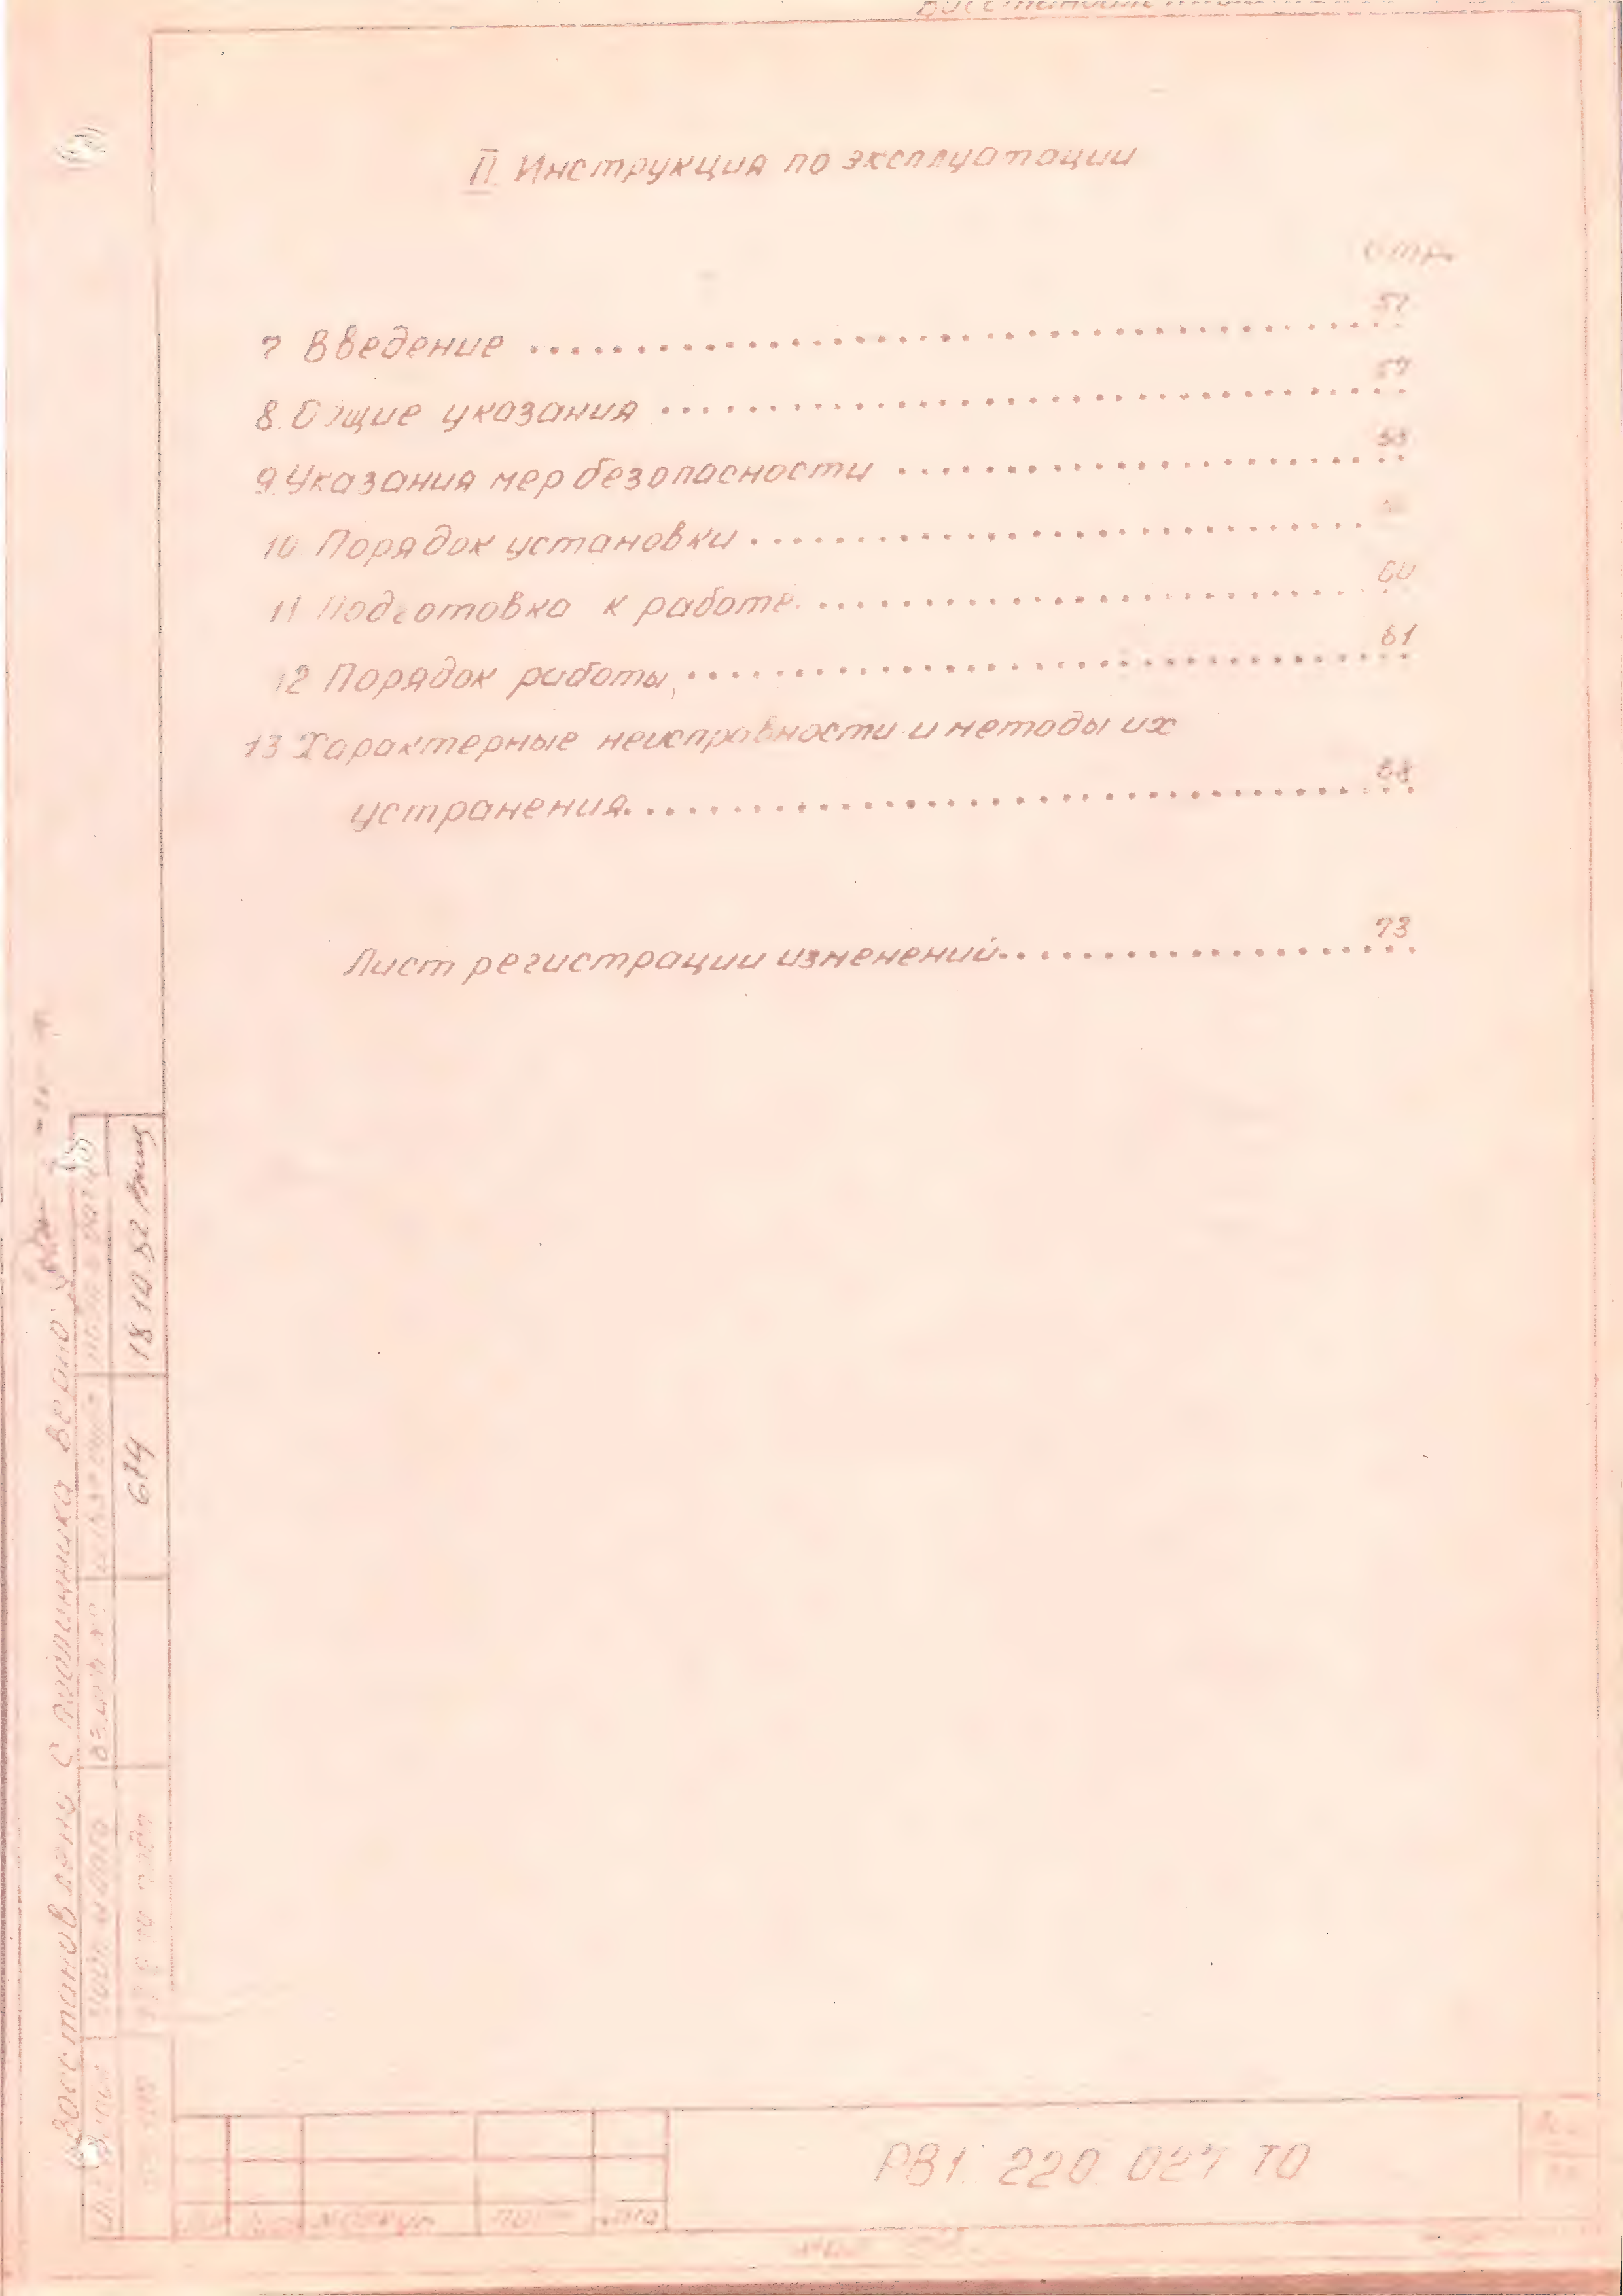 II Инструкция по эксплуатации
Стр.
7 Введение 57
8. Общие указания 57
9. Указания мер безопасности
10 Порядок установки
11 Подготовка к работе 60
12 Порядок работы 61
13 Характерные неисправности и методы их
устранения
Лист регистрации изменений 73
Восстановлено с подлинника верно
674
РВ1. 220. 027 ТО